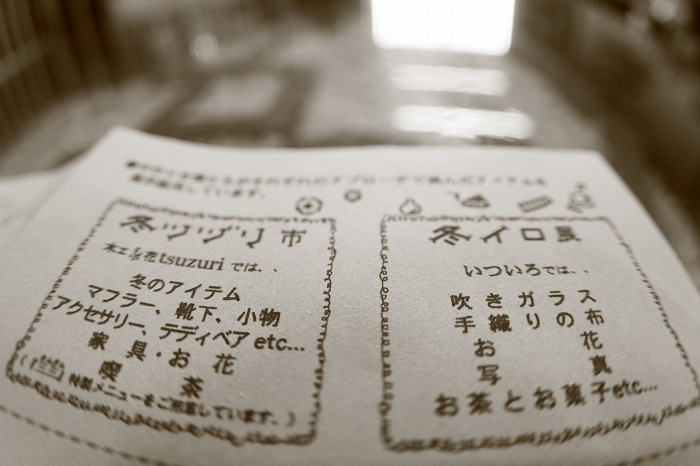 冬ツヅリ市
木工と花tsuzuri では、、
冬のアイテム
マフラー、靴下、小物
アクセサリー、テディベア etc...
家具・お花
喫茶
(特製メニューをご用意しています。)
冬イロ展
いついろでは、、
吹きガラス
手織りの布
お花
写真
お茶とお菓子etc...